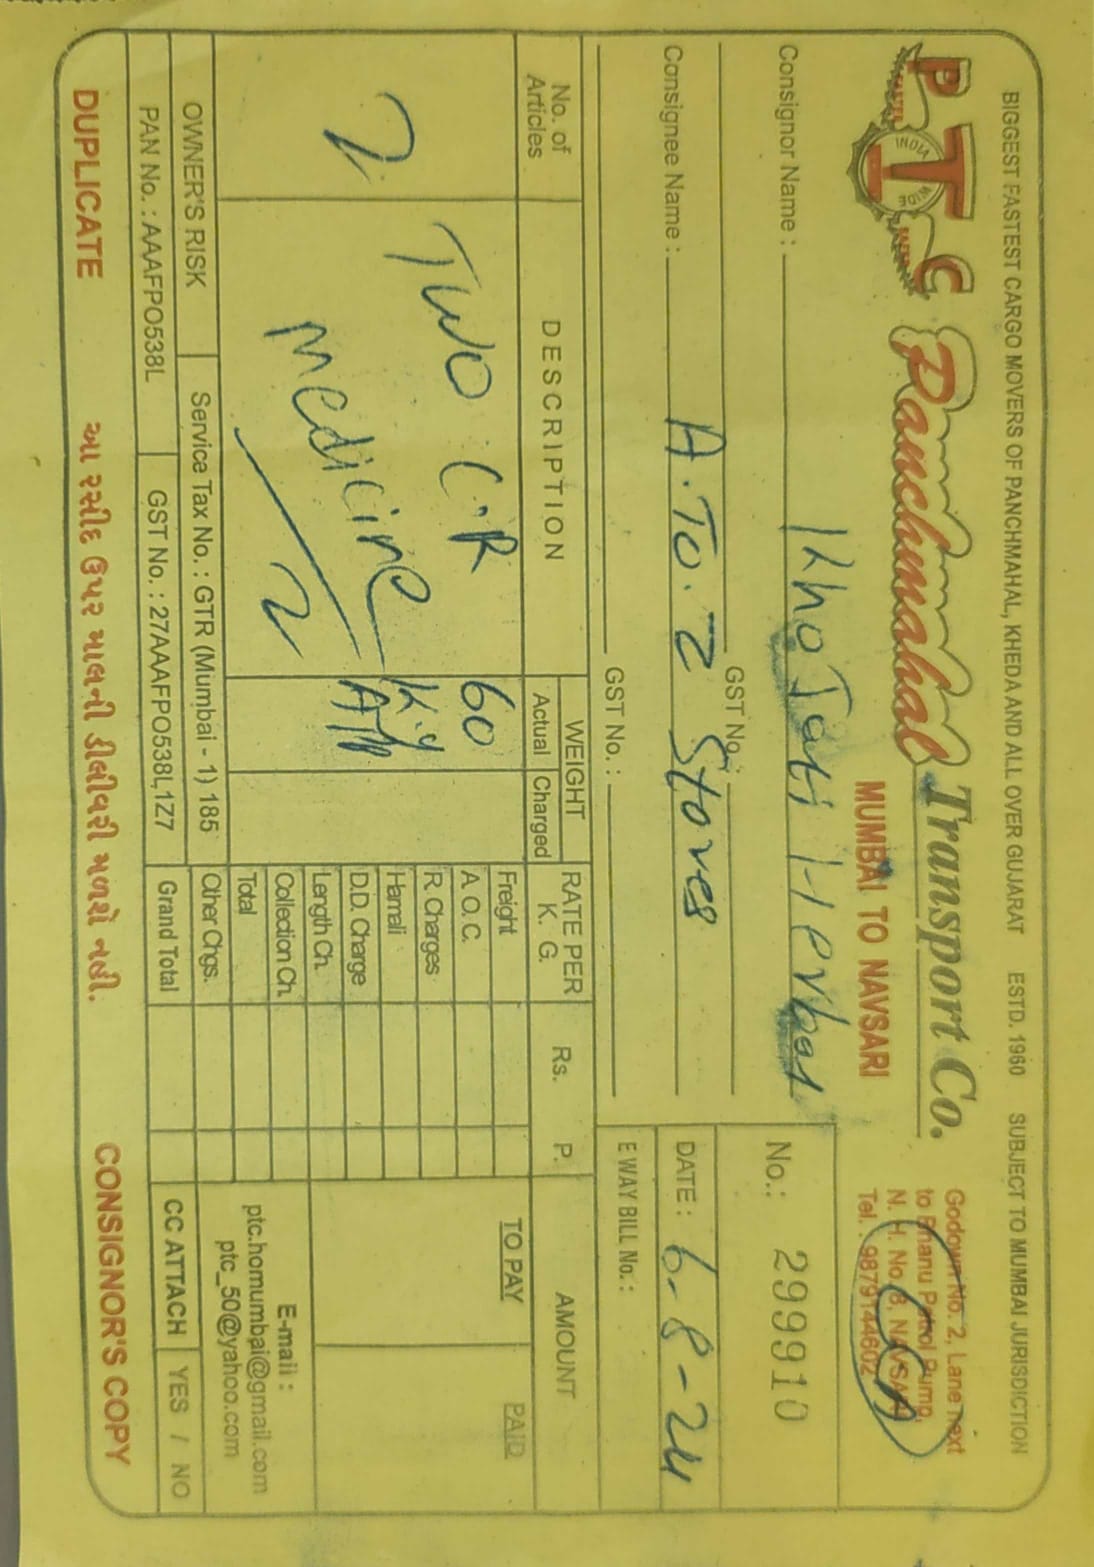 BIGGEST FASTEST CARGO MOVERS OF PANCHMAHAL, KHEDA AND ALL OVER GUJARAT ESTD. 1960 SUBJECT TO MUMBAI JURISDICTION
PTC Panchmahal Transport Co.
INDIA WIDE
MUMBAI TO NAVSARI
Godown No. 2, Lane next
to Bhanu Petrol Pump,
N. H. No. 8, NAVSARI
Tel.: 9879144602
Consignor Name : KhoJati Herbal
GST No.:
No.: 299910
Consignee Name : A.To.Z Stores
DATE : 6-8-24
GST No. :
E WAY BILL No. :
No. of Articles
DESCRIPTION
WEIGHT
Actual Charged
RATE PER K. G.
Rs. P.
AMOUNT
TO PAY PAID
2
TWO C.R
medicine
2
60
Kg
Freight
A.O.C.
R. Charges
Hamali
D.D. Charge
Length Ch.
Collection Ch.
Total
Other Chgs.
Grand Total
E-mail :
ptc.homumbai@gmail.com
ptc_50@yahoo.com
OWNER'S RISK Service Tax No. : GTR (Mumbai - 1) 185
PAN No. : AAAFPO538L GST No. : 27AAAFPO538L1Z7
CC ATTACH YES / NO
DUPLICATE આ રસીદ ઉપર માલની ડીલીવરી મળશે નહી. CONSIGNOR'S COPY